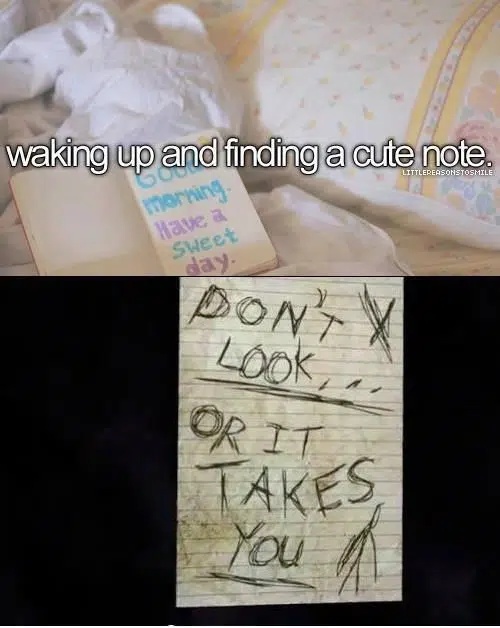 waking up and finding a cute note.
LITTLEREASONSTOSMILE
Good
morning.
Have a
sweet
day.
DON'T
LOOK...
OR IT
TAKES
YOU